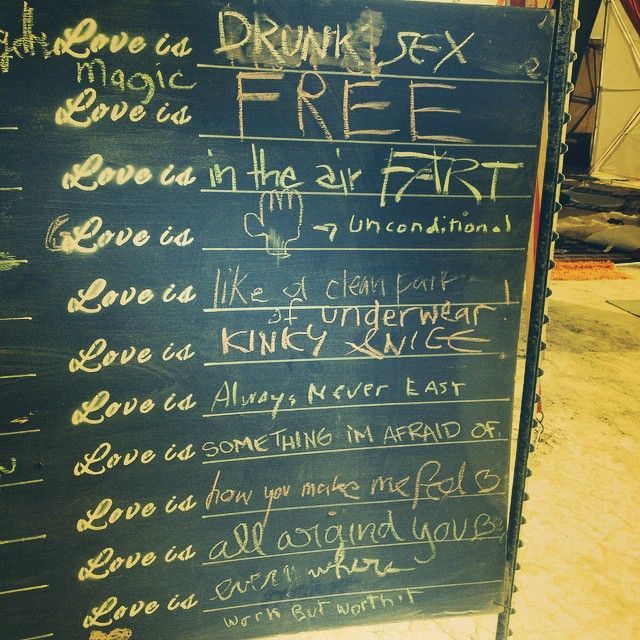 Love is DRUNK SEX
magic
Love is FREE
Love is in the air FART
GLove is → unconditional
Love is like a clean pair
of underwear
Love is KINKY & NICE
Love is Always Never East
Love is SOMETHING iM AFRAID OF.
Love is how you makes me feel
Love is all argind you
Love is every where
work But worth it